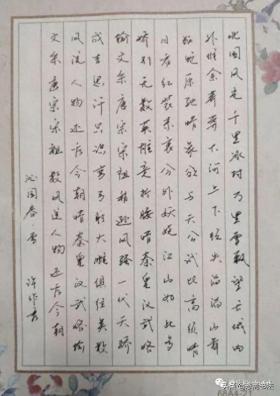 北国风光千里冰封万里雪飘望长城内
外惟余莽莽大河上下顿失滔滔山舞
银蛇原驰蜡象欲与天公试比高须晴
日看红装素裹分外妖娆江山如此多
娇引无数英雄竞折腰惜秦皇汉武略
输文采唐宗宋祖稍逊风骚一代天骄
成吉思汗只识弯弓射大雕俱往矣数
风流人物还看今朝惜秦皇汉武略输
文采唐宗宋祖数风流人物还看今朝
沁园春 雪